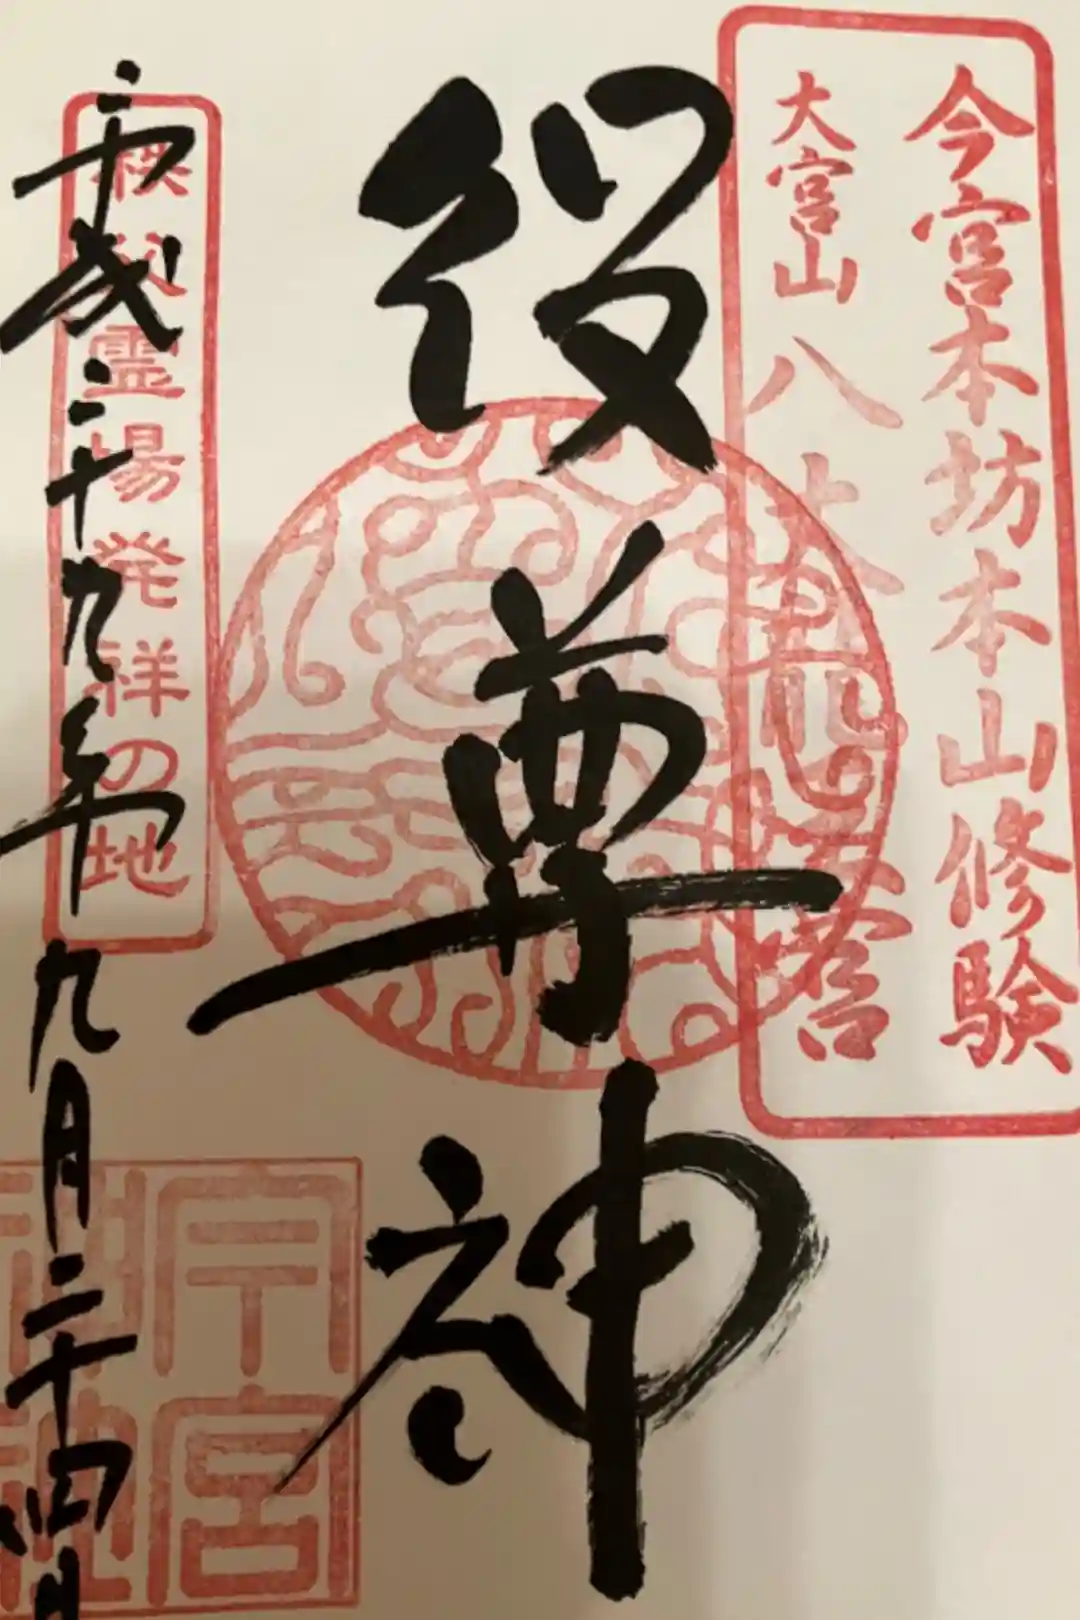 今宮本坊本山修験
大宮山八大
役尊神
秩父霊場発祥の地
平成二十九年九月二十四日
今宮